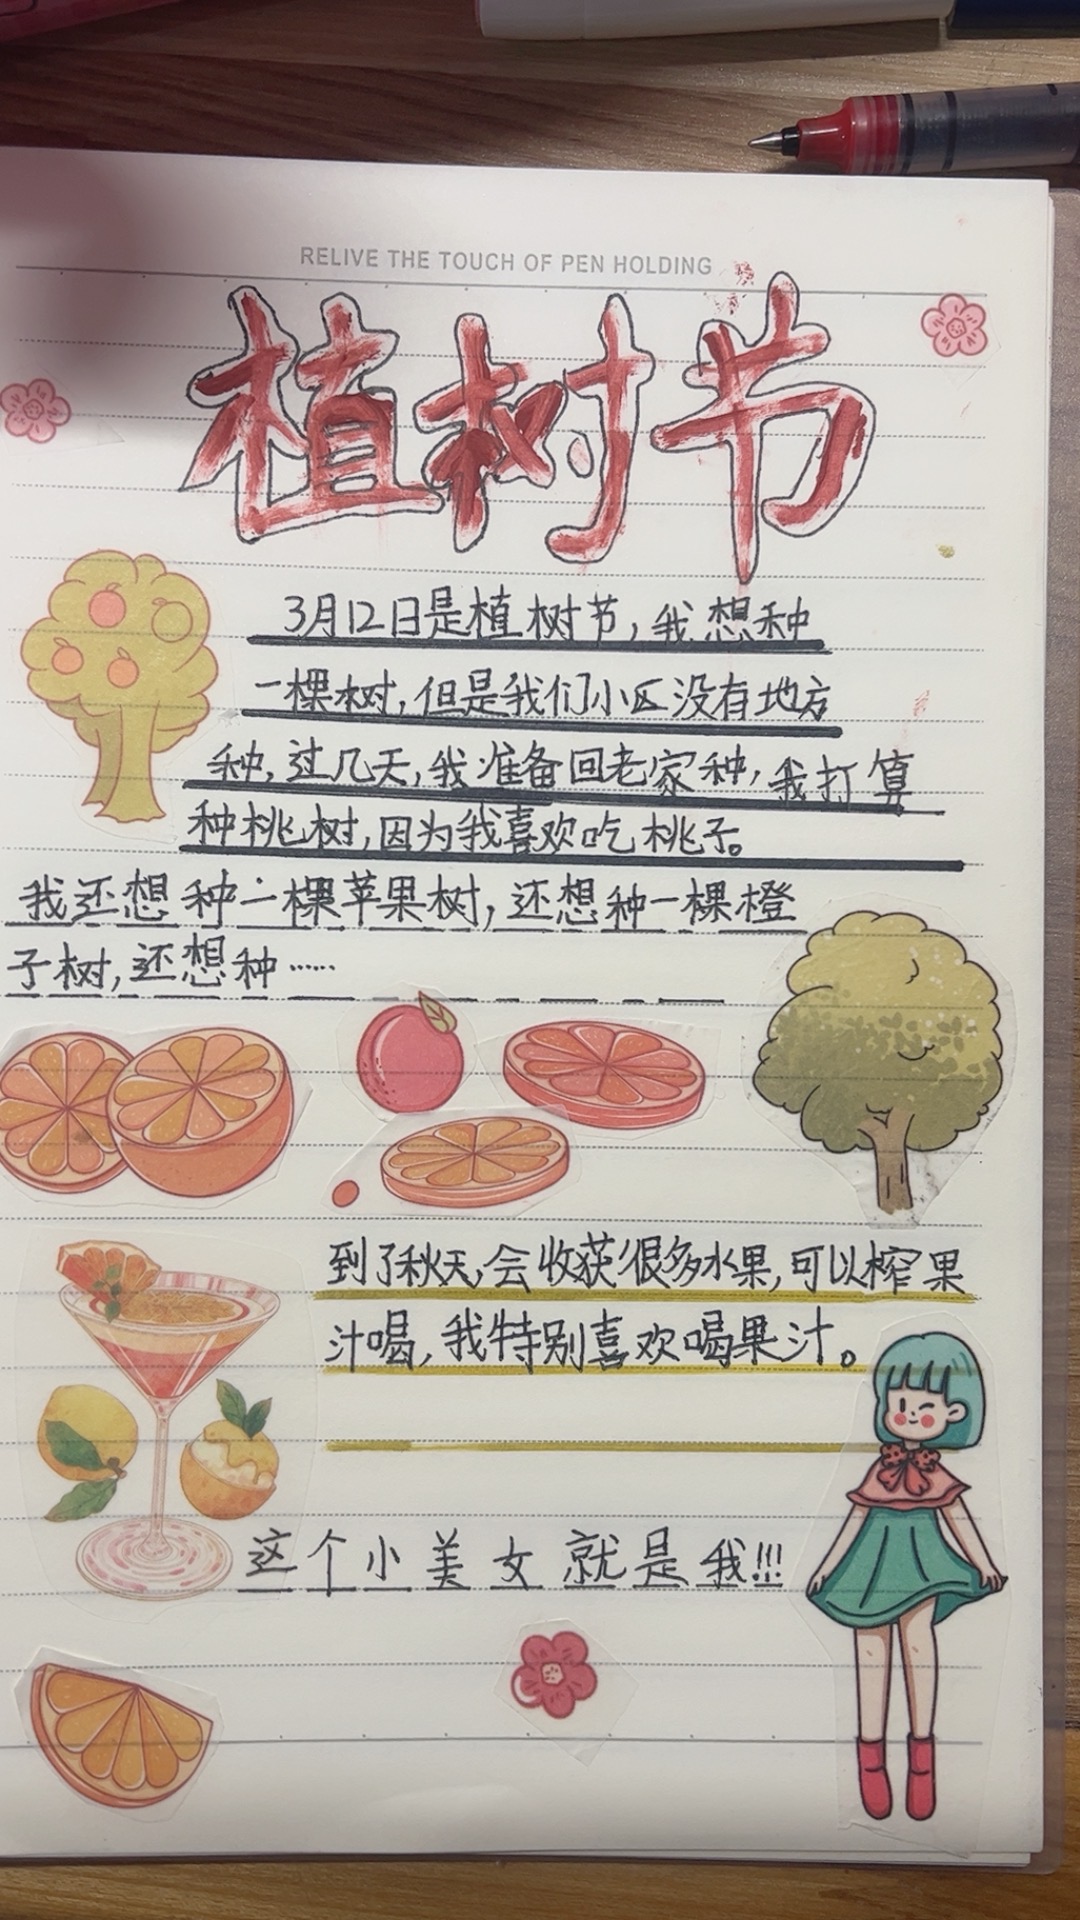 RELIVE THE TOUCH OF PEN HOLDING
植树节
3月12日是植树节,我想种
一棵树,但是我们小区没有地方
种,过几天,我准备回老家种,我打算
种桃树,因为我喜欢吃桃子。
我还想种一棵苹果树,还想种一棵橙
子树,还想种……
到了秋天,会收获很多水果,可以榨果
汁喝,我特别喜欢喝果汁。
这个小美女就是我!!!